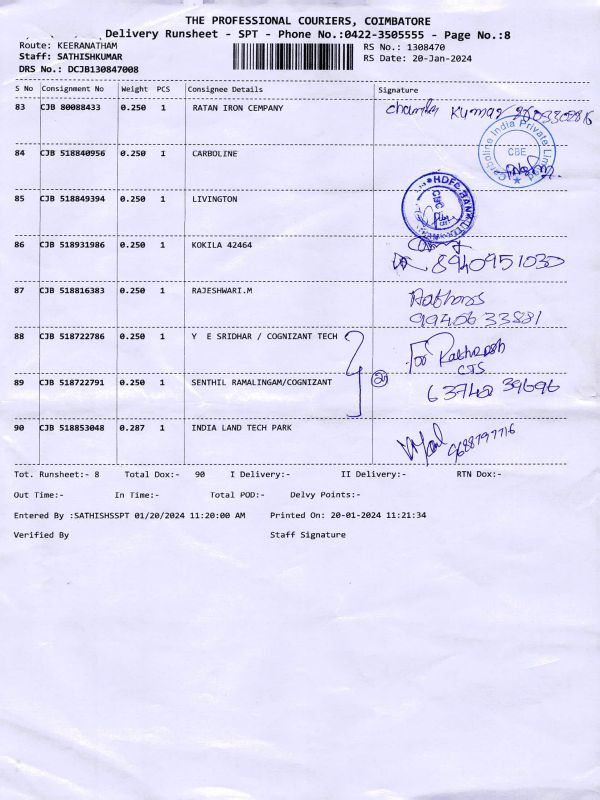 THE PROFESSIONAL COURIERS, COIMBATORE
Delivery Runsheet - SPT - Phone No.:0422-3505555 - Page No.:8
Route: KEERANATHAM
RS No.: 1308470
Staff: SATHISHKUMAR
RS Date: 20-Jan-2024
DRS No.: DCJB130847008
S No Consignment No Weight PCS Consignee Details Signature
83 CJB 80088433 0.250 1 RATAN IRON CEMPANY
Kumar
84 CJB 518840956 0.250 1 CARBOLINE
Carboline India Private Limited
CBE
85 CJB 518849394 0.250 1 LIVINGTON
HDFC BANK
CBE
86 CJB 518931986 0.250 1 KOKILA 42464
8940951030
87 CJB 518816383 0.250 1 RAJESHWARI.M
9940633881
88 CJB 518722786 0.250 1 Y E SRIDHAR / COGNIZANT TECH
For
CTS
89 CJB 518722791 0.250 1 SENTHIL RAMALINGAM/COGNIZANT
63742 39696
90 CJB 518853048 0.287 1 INDIA LAND TECH PARK
9688797716
Tot. Runsheet:- 8 Total Dox:- 90 I Delivery:- II Delivery:- RTN Dox:-
Out Time:- In Time:- Total POD:- Delvy Points:-
Entered By :SATHISHSSPT 01/20/2024 11:20:00 AM Printed On: 20-01-2024 11:21:34
Verified By Staff Signature